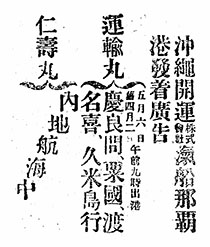 沖繩開運株式會社滊船那覇
港發着廣告
運輸丸
五月六日午前九時出港
第四月二
慶良間、粟國、渡
名喜久米島行
仁壽丸
内地航海中